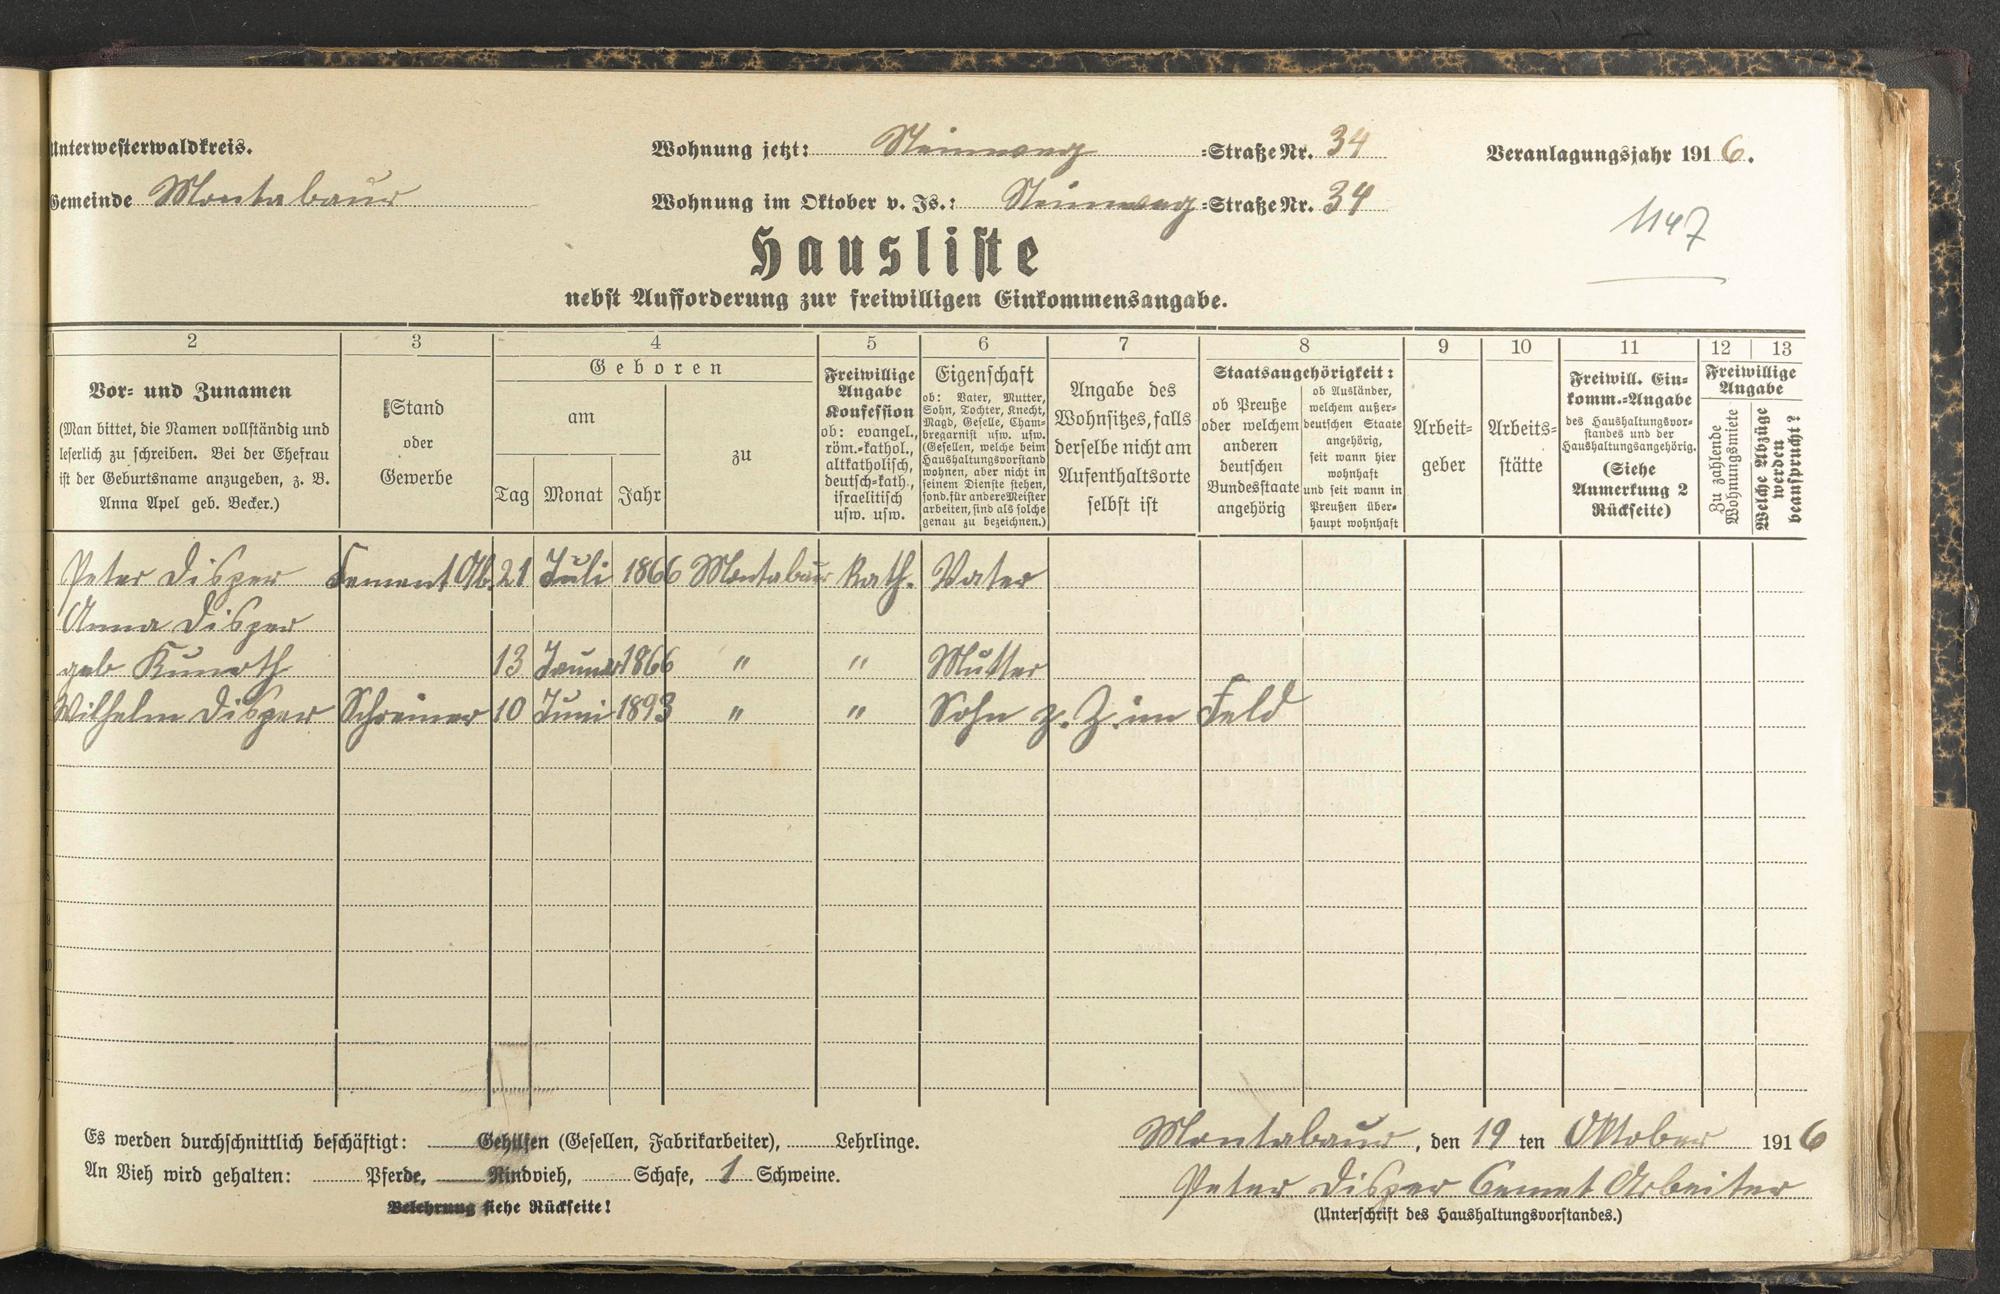 Unterwesterwaldkreis.
Wohnung jetzt: Steinweg =Straße Nr. 34
Veranlagungsjahr 1916.
Gemeinde Montabaur
Wohnung im Oktober v. Js.: Steinweg =Straße Nr. 34
1147
Hausliste
nebst Aufforderung zur freiwilligen Einkommensangabe.
2 3 4 5 6 7 8 9 10 11 12 13
Vor- und Zunamen
(Man bittet, die Namen vollständig und
leserlich zu schreiben. Bei der Ehefrau
ist der Geburtsname anzugeben, z. B.
Anna Apel geb. Becker.)
Stand
oder
Gewerbe
Geboren
am
Tag Monat Jahr
zu
Freiwillige
Angabe
Konfession
ob: evangel.,
röm.-kathol.,
altkatholisch,
deutsch-kath.,
israelitisch
usw. usw.
Eigenschaft
ob: Vater, Mutter,
Sohn, Tochter, Knecht,
Magd, Geselle, Cham-
bregarnist usw. usw.
(Gesellen, welche beim
Haushaltungsvorstand
wohnen, aber nicht in
seinem Dienste stehen,
sond. für andere Meister
arbeiten, sind als solche
genau zu bezeichnen.)
Angabe des
Wohnsitzes, falls
derselbe nicht am
Aufenthaltsorte
selbst ist
Staatsangehörigkeit:
ob Preuße
oder welchem
anderen
deutschen
Bundesstaate
angehörig
ob Ausländer,
welchem außer-
deutschen Staate
angehörig,
seit wann hier
wohnhaft
und seit wann in
Preußen über-
haupt wohnhaft
Arbeit-
geber
Arbeits-
stätte
Freiwill. Ein-
komm.-Angabe
des Haushaltungsvor-
standes und der
Haushaltungsangehörig.
(Siehe
Anmerkung 2
Rückseite)
Freiwillige
Angabe
Zu zahlende
Wohnungsmiete
Welche Abzüge
werden
beansprucht?
Peter Disper Cement Ab. 21 Juli 1866 Montabaur Kath. Vater
Anna Disper
geb Kunoth 13 Januar 1866 " " Mutter
Wilhelm Disper Schreiner 10 Juni 1893 " " Sohn z. Z. im Feld
Es werden durchschnittlich beschäftigt: Gehilfen (Gesellen, Fabrikarbeiter), Lehrlinge.
An Vieh wird gehalten: Pferde, Rindvieh, Schafe, 1 Schweine.
Belehrung siehe Rückseite!
Montabaur, den 19 ten Oktober 1916
Peter Disper Cemet Arbeiter
(Unterschrift des Haushaltungsvorstandes.)